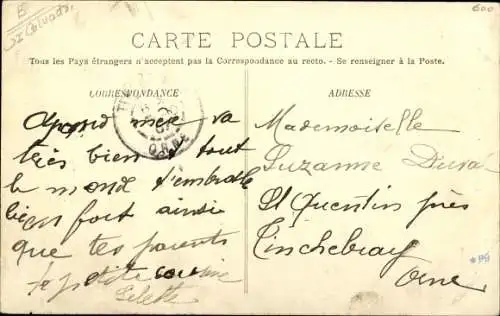 B
Calvados
600
CARTE POSTALE
Tous les Pays étrangers n'acceptent pas la Correspondance au recto. - Se renseigner à la Poste.
CORRESPONDANCE
mère va
très bien, tout
le monde t'embrasse
bien fort ainsi
que tes parents
ta petite cousine
ORNE
ADRESSE
Mademoiselle
Suzanne
St Quentin près
Tinchebray
Orne